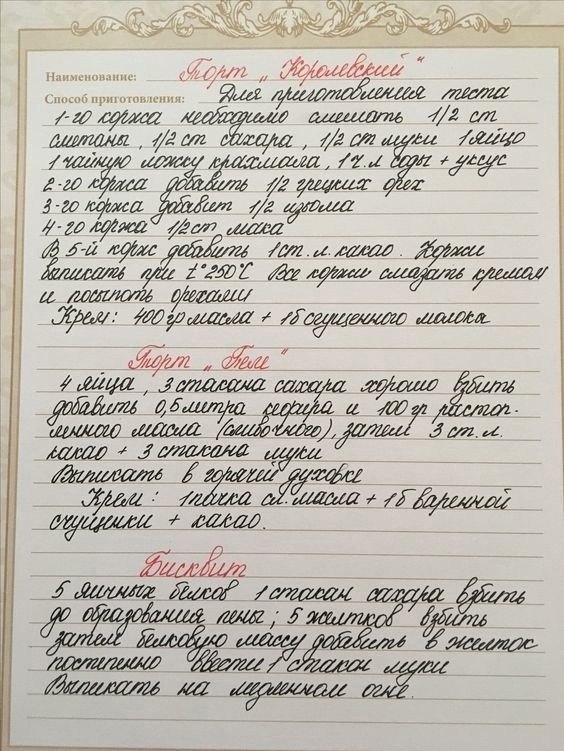 Наименование: Торт „Королевский"
Способ приготовления: Для приготовления теста
1-го коржа необходимо смешать 1/2 ст
сметаны, 1/2 ст сахара, 1/2 ст муки 1 яйцо
1 чайную ложку крахмала, 1 ч.л соды + уксус
2-го коржа добавить 1/2 грецких орех
3-го коржа добавит 1/2 изюма
4-го коржа 1/2 ст мака
В 5-й корж добавить 1 ст. л. какао. Коржи
выпикать при t° 250°C Все коржи смазать кремом
и посыпать орехами
Крем: 400 гр масла + 1б сгущенного молока
Торт „Пеле"
4 яйца, 3 стакана сахара хорошо взбить
добавить 0,5 литра кефира и 100 гр растоп-
ленного масла (сливочного), затем 3 ст. л.
какао + 3 стакана муки
Выпикать в горячей духовке
Крем: 1 пачка сл. масла + 1б варенной
сгущенки + какао.
Бисквит
5 яичных белков 1 стакан сахара взбить
до образования пены; 5 желтков взбить
затем белковую массу добавить в желток
постепенно ввести 1 стакан муки
Выпикать на медленном огне.